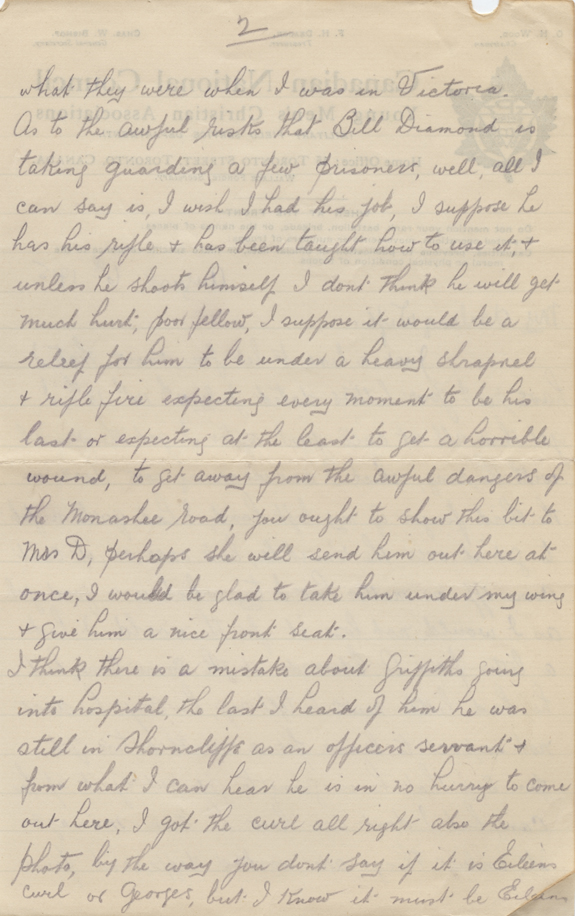 2
what they were when I was in Victoria.
As to the awful risks that Bill Diamond is
taking guarding a few prisoners, well, all I
can say is, I wish I had his job, I suppose he
has his rifle + has been taught how to use it, +
unless he shoots himself I dont think he will get
much hurt, poor fellow, I suppose it would be a
relief for him to be under a heavy shrapnel
+ rifle fire expecting every moment to be his
last or expecting at the least to get a horrible
wound, to get away from the awful dangers of
the Monashee road, you ought to show this bit to
Mrs D, perhaps she will send him out here at
once, I would be glad to take him under my wing
+ give him a nice front seat.
I think there is a mistake about Griffiths going
into hospital, the last I heard of him he was
still in Shorncliffe as an officers servant +
from what I can hear he is in no hurry to come
out here, I got the curl all right also the
photo, by the way you dont say if it is Eileens
curl or Georges, but I know it must be Eileens